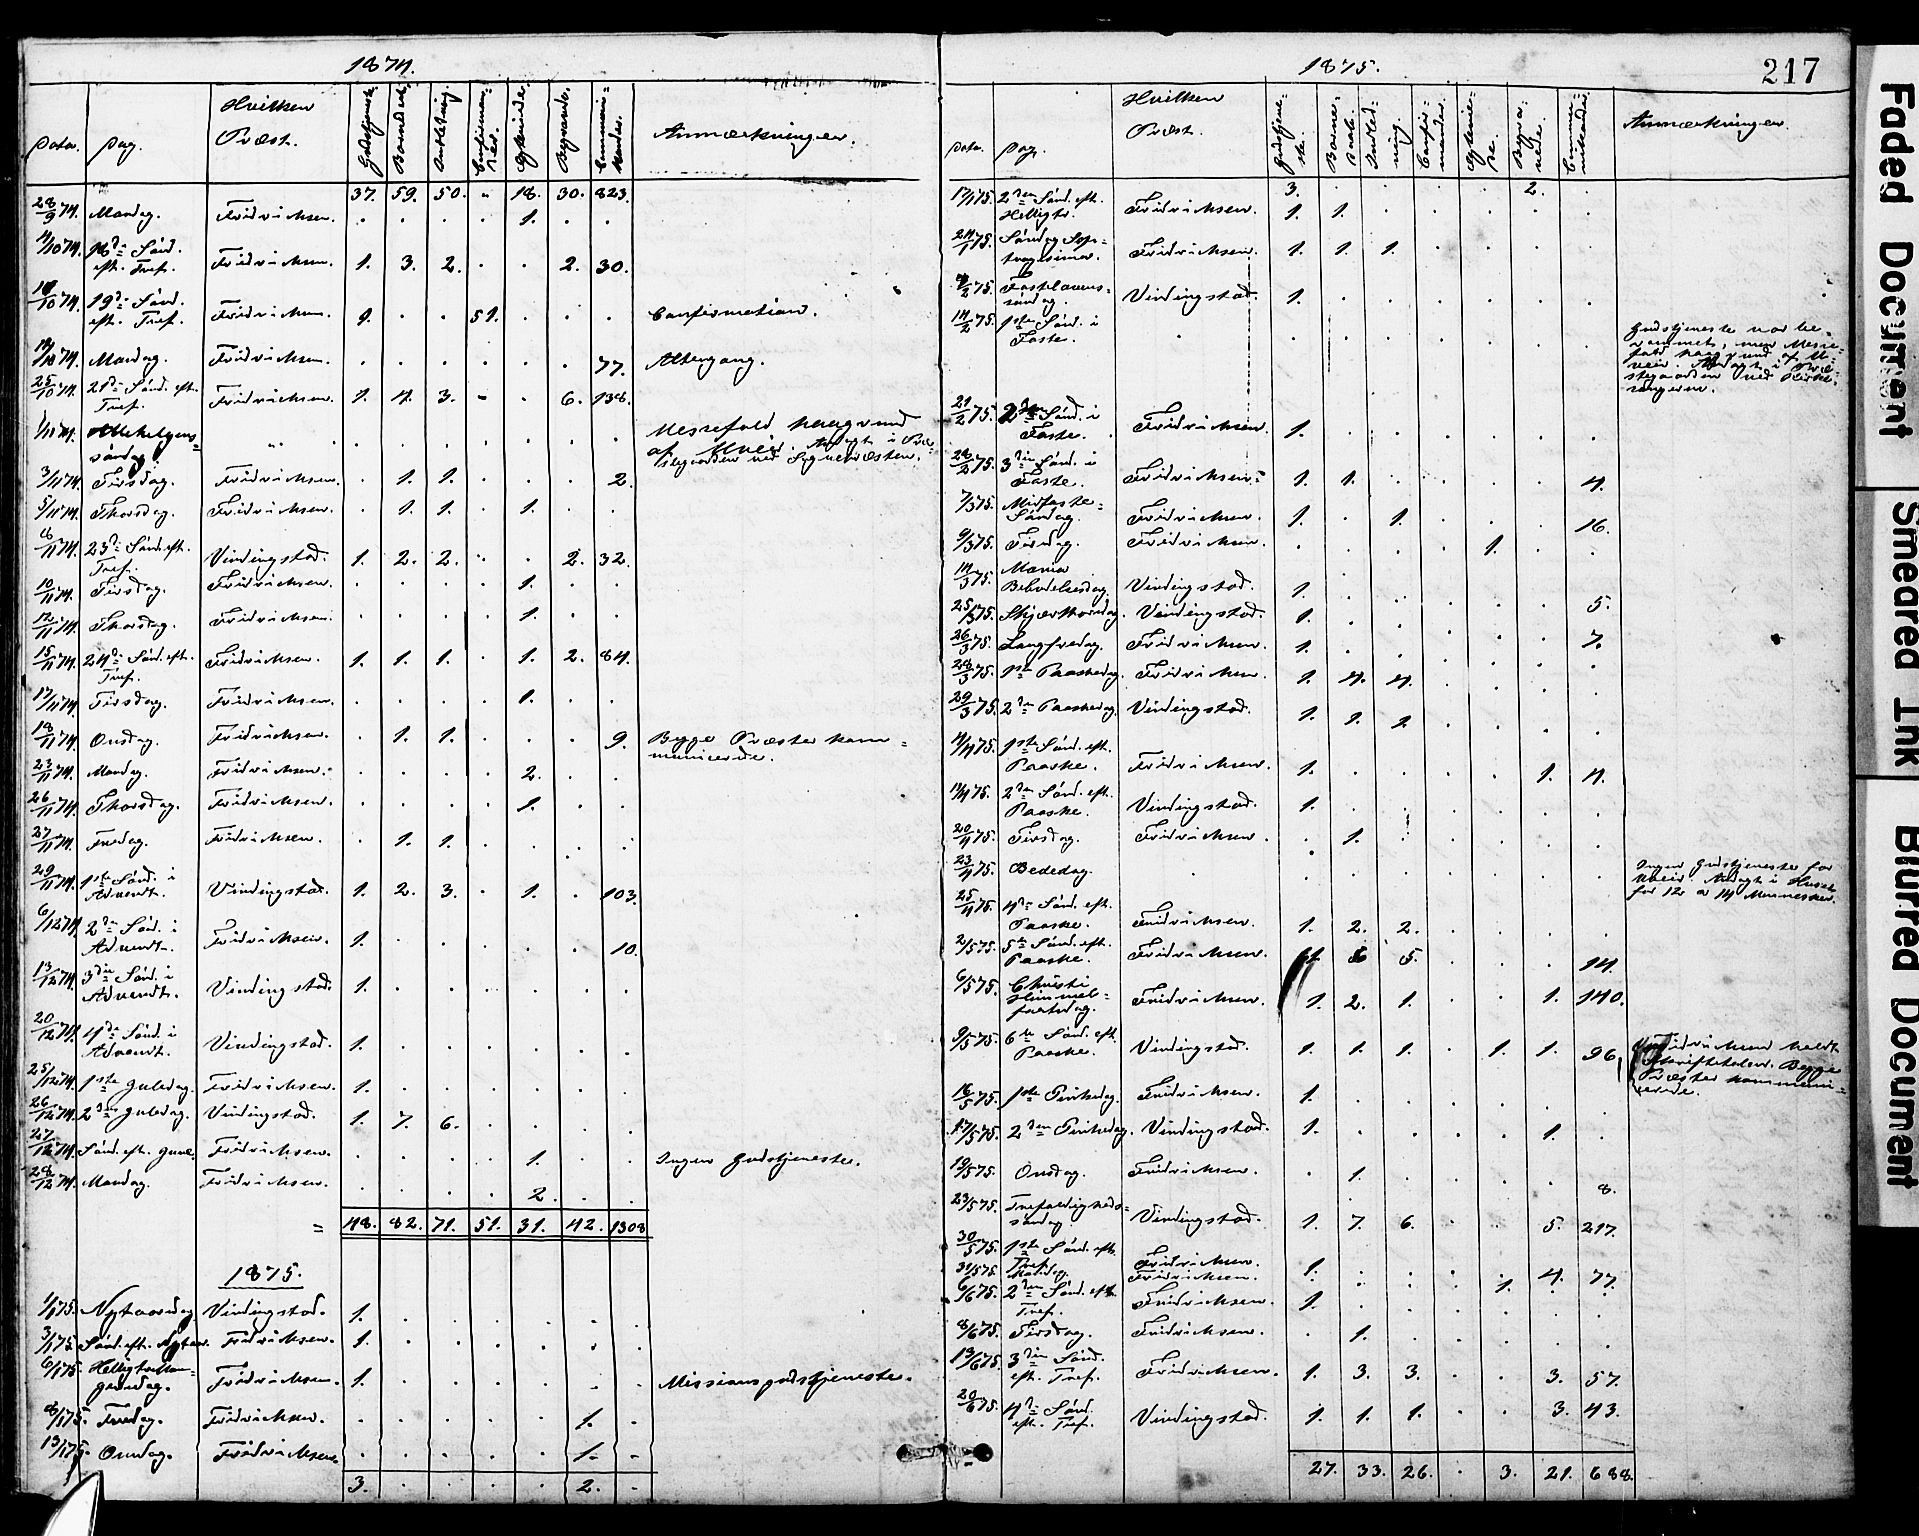 1874.
Dato. Dag. Hvilken Præst. Gudstjeneste. Barnedaab. Indledning. Confirmanded. Ægteviede. Begravede. Communikander. Anmærkninger.
37. 59. 50. " 18. 30. 823.
28/9 74. Mandag. Fridrichsen. . . . . 1. . .
4/10 74. 18de Sønd. eft. Tref. Fridrichsen. 1. 3. 2. . . 2. 30.
11/10 74. 19de Sønd. eft. Tref. Fridrichsen. 1. . . 51. . . . Confirmation.
12/10 74. Mandag. Fridrichsen. . . . . . . 77. Altergang.
25/10 74. 21de Sønd. eft. Tref. Fridrichsen. 1. 4. 3. . . 6. 138.
1/11 74. Allehelgens=søndag. " . . . . . . . Messefald paagrund af Uveir. Andagt i Præstegaarden ved Sognepræsten.
3/11 74. Tirsdag. Fridrichsen. . 1. 1. . . . 2.
5/11 74. Thorsdag. Fridrichsen. . 1. 1. . 1. . .
8/11 74. 23de Sønd. eft. Tref. Vindingstad. 1. 2. 2. . . 2. 32.
10/11 74. Tirsdag. Fridrichsen. . . . . 1. . .
12/11 74. Thorsdag. Fridrichsen. . . . . 1. . .
15/11 74. 24de Sønd. eft. Tref. Fridrichsen. 1. 1. 1. . 1. 2. 84.
17/11 74. Tirsdag. Fridrichsen. . . . . 1. . .
18/11 74. Onsdag. Fridrichsen. . 1. 1. . . . 9. Begge Præster kom=municerede.
23/11 74. Mandag. Fridrichsen. . . . . 2. . .
26/11 74. Thorsdag. Fridrichsen. . . . . 1. . .
27/11 74. Fredag. Fridrichsen. . 1. 1. . . . .
29/11 74. 1ste Sønd. i Advendt. Vindingstad. 1. 2. 3. . 1. . 103.
6/12 74. 2den Sønd. i Advendt. Fridrichsen. 1. . . . . . 10.
13/12 74. 3die Sønd. i Advendt. Vindingstad. 1. . . . . . .
20/12 74. 4de Sønd. i Advendt. Vindingstad. 1. . . . . . .
25/12 74. 1ste Juledag. Fridrichsen. 1. . . . . . .
26/12 74. 2den Juledag. Vindingstad. 1. 7. 6. . . . .
27/12 74. Sønd. eft. Juul. Fridrichsen. . . . . 1. . . Ingen Gudstjeneste.
28/12 74. Mandag. Fridrichsen. . . . . 2. . .
= 48. 82. 71. 51. 31. 42. 1308
1875.
1/1 75. Nytaarsdag Vindingstad. 1. . . . . . .
3/1 75. Sønd. eft. Nytaar. Fridrichsen. 1. . . . . . .
6/1 75. Helligtrekon=gersdag. Fridrichsen. 1. . . . . . . Missionsgudstjeneste.
8/1 75. Fredag. Fridrichsen. . . . . . 1. .
13/1 75. Onsdag. Fridrichsen. . . . . . 1. .
3. . . . . 2. .
1875. 217
Dato. Dag. Hvilken Præst. Gudstjene=ste. Barne=daab. Indled=ning. Confir=mander. Ægtevie=de. Begra=vede. Commu=nikander. Anmærkninger.
3. . . . . 2. .
17/1 75. 2den Sønd. eft. Helligtr. Fridrichsen. 1. 1. . . . . .
24/1 75. Søndag Sep=tuagesima. Fridrichsen. 1. 1. 1. . . . .
7/2 75. Fastelavens=søndag. Vindingstad. 1. . . . . . .
14/2 75. 1ste Sønd. i Faste. . . . . . . . . Gudstjeneste var be=rammet, men Messe=fald paagrund af U=veir. Andagt i Præ=stegaarden ved Kirke=sangeren.
21/2 75. 2den Sønd. i Faste. Fridrichsen. 1. . . . . . .
28/2 75. 3die Sønd. i Faste. Fridrichsen. 1. 1. . . . . 4.
7/3 75. Midfaste=Søndag. Fridrichsen. 1. . 1. . . . 16.
9/3 75. Tirsdag. Fridrichsen. . . . . 1. . .
14/3 75. Mariæ Bebudelsesdag. Vindingstad. 1. . . . . . 5.
25/3 75. Skjærthorsdag. Vindingstad. 1. . . . . . .
26/3 75. Langfredag. Fridrichsen. 1. . . . . . 7.
28/3 75. 1ste Paaskedag. Fridrichsen. 1. 4. 4. . . . .
29/3 75. 2den Paaskedag. Vindingstad. 1. 1. 1. . . . .
4/4 75. 1ste Sønd. eft. Paaske. Fridrichsen. 1. . . . . 1. 4.
11/4 75. 2den Sønd. eft. Paaske. Vindingstad. 1. . . . . . .
20/4 75. Tirsdag. Fridrichsen. . 1. . . . . .
23/4 75. Bededag. . . . . . . . . Ingen Gudstjeneste for Uveir. Andagt i Huset for 12 a 14 Mennesker.
25/4 75. 4de Sønd. eft. Paaske. Fridrichsen. 1. 2. 2. . . . .
2/5 75. 5te Sønd. eft. Paaske. Fridrichsen. 1. 6 5. . . . 14.
6/5 75. Christi Himmel=fartsdag. Fridrichsen. 1. 2. 1. . . 1. 140.
9/5 75. 6te Sønd. eft. Paaske. Vindingstad. 1. 1. 1. . 1. 1. 96. Fridrichsen holdt Skriftetalen. Begge Præster kommuni=cerede.
16/5 75. 1ste Pintsedag. Fridrichsen. 1. . . . . . .
17/5 75. 2den Pintsedag. Vindingstad. 1. . . . . 1. .
19/5 75. Onsdag. Fridrichsen. . 1. . . . . 8.
23/5 75. Trefoldigheds=søndag Vindingstad. 1. 7. 6. . . 5. 217.
30/5 75. 1ste Sønd. eft. Tref. Fridrichsen. 1. . . . . 4. 77.
31/5 75. Mandag. Fridrichsen. . . . . 1. . .
6/6 75. 2den Sønd. eft. Tref. Fridrichsen. 1. . . . . . .
8/6 75. Tirsdag. Fridrichsen. . 1. . . . . .
13/6 75. 3die Sønd. eft. Tref. Fridrichsen. 1. 3. 3. . . 3. 57.
20/6 75. 4de Sønd. eft. Tref. Vindingstad. 1. 1. 1. . . 3. 43.
27. 33. 26. . 3. 21. 688.
Faded Document
Smeared Ink
Blurred Document